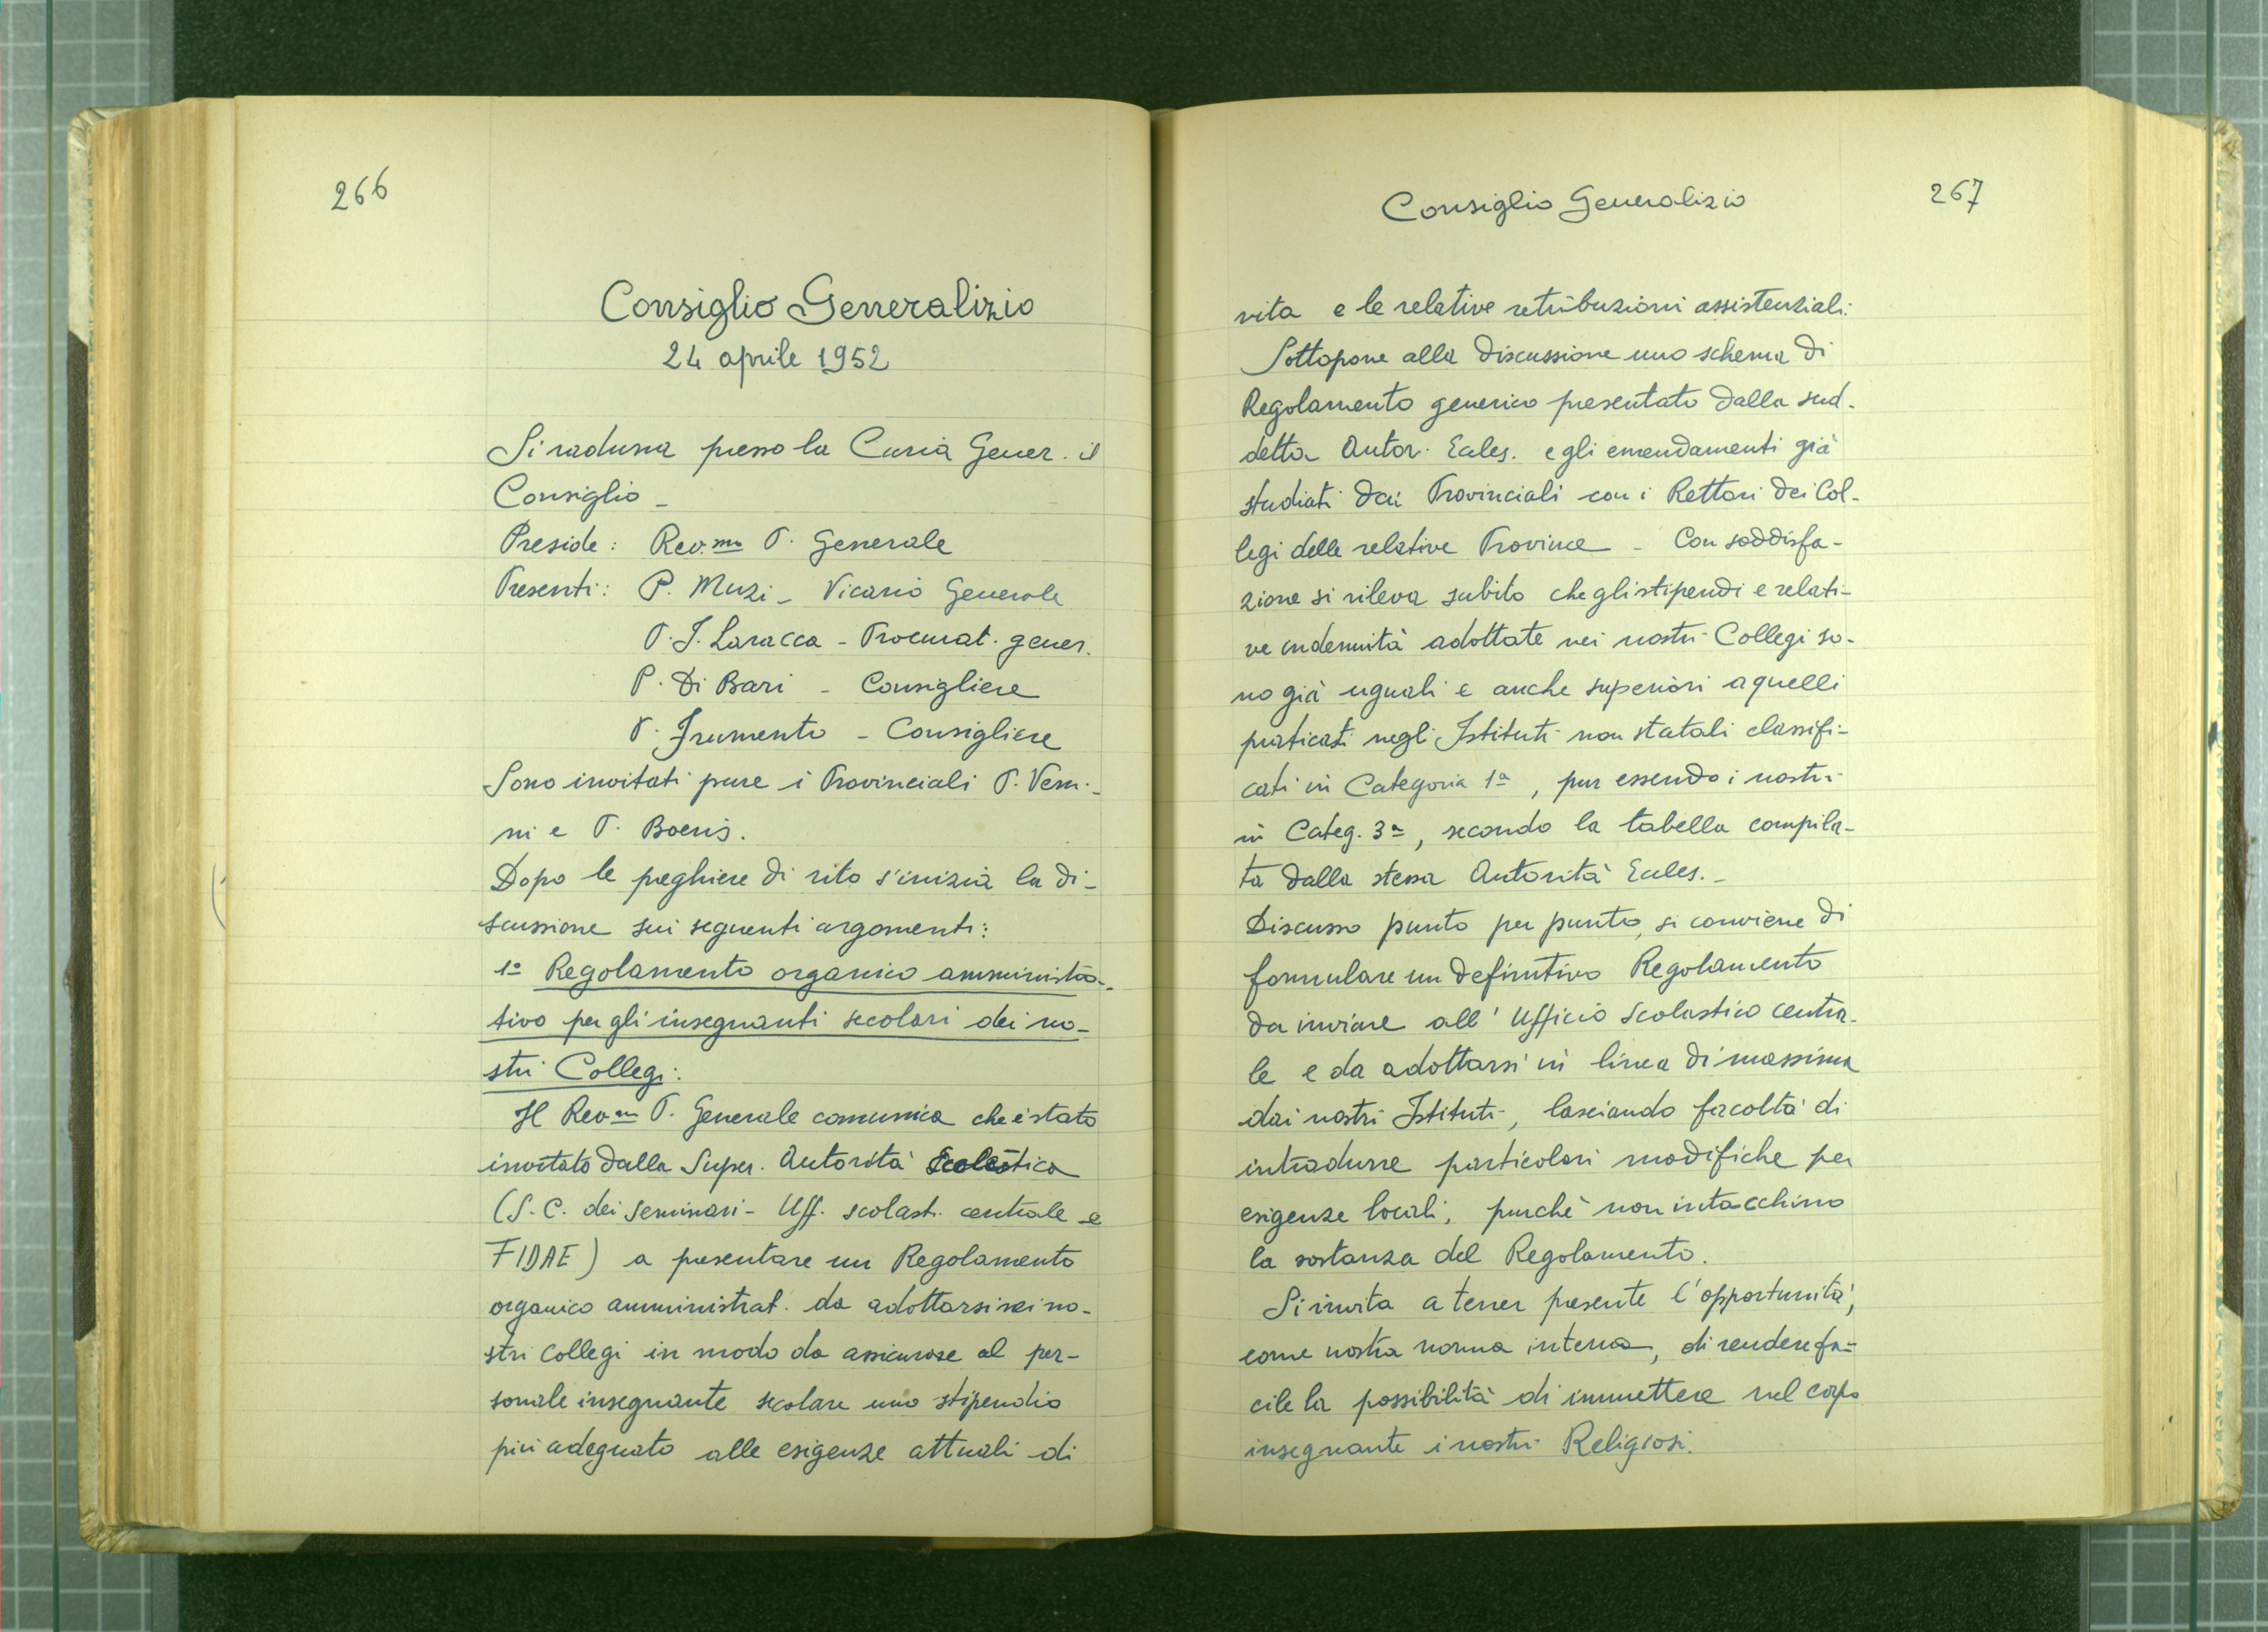 266
Consiglio Generalizio
24 aprile 1952
Si raduna presso la Curia Gener. il
Consiglio -
Preside: Rev.mo P. Generale
Presenti: P. Muzi - Vicario Generale
P. I. Laracca - Procurat. gener.
P. Di Bari - Consigliere
P. Frumento - Consigliere
Sono invitati pure i Provinciali P. Veni-
ni e P. Boeris.
Dopo le preghiere di rito s'inizia la di-
scussione sui seguenti argomenti:
1º Regolamento organico amministra-
tivo per gli insegnanti secolari dei no-
stri Collegi.
Il Rev.mo P. Generale comunica che è stato
invitato dalla Super. Autorità
(S. C. dei Seminari - Uff. scolast. centrale e
FIDAE) a presentare un Regolamento
organico amministrat. da adottarsi nei no-
stri Collegi in modo da assicurare al per-
sonale insegnante secolare uno stipendio
più adeguato alle esigenze attuali di
Consiglio Generalizio
267
vita e le relative retribuzioni assistenziali.
Sottopone alla discussione uno schema di
Regolamento generico presentato dalla sud-
detta Autor. Eccles. e gli emendamenti già
studiati dai Provinciali con i Rettori dei Col-
legi delle relative Provincie - Con soddisfa-
zione si rileva subito che gli stipendi e relati-
ve indennità adottate nei nostri Collegi so-
no già uguali e anche superiori a quelli
praticati negli Istituti non statali classifi-
cati in Categoria 1ª, pur essendo i nostri
in Categ. 3ª, secondo la tabella compila-
ta dalla stessa Autorità Eccles. -
Discusso punto per punto, si conviene di
formulare un definitivo Regolamento
da inviare all'Ufficio Scolastico centra-
le e da adottarsi in linea di massima
dai nostri Istituti, lasciando facoltà di
introdurre particolari modifiche per
esigenze locali, purchè non intacchino
la sostanza del Regolamento.
Si invita a tener presente l'opportunità,
come nostra norma interna, di rendere fa=
cile la possibilità di immettere nel corpo
insegnante i nostri Religiosi.